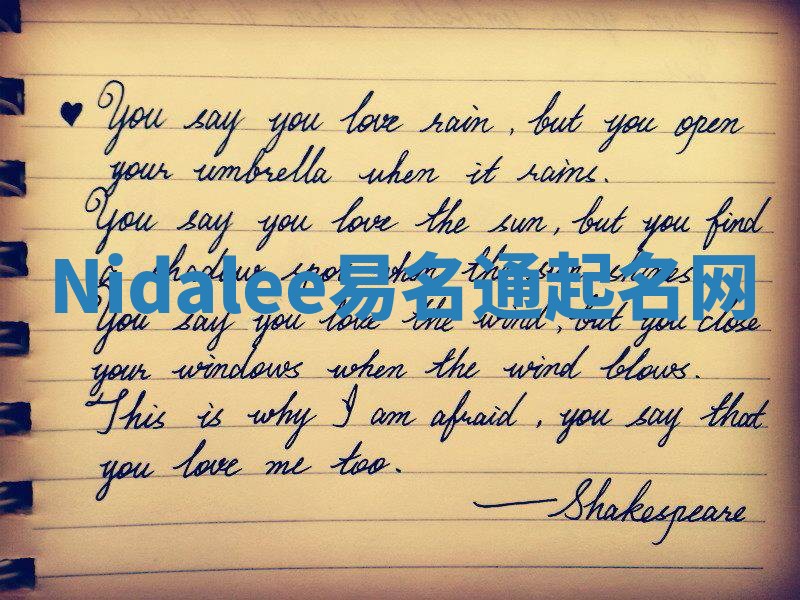 ♥ You say you love rain, but you open
your umbrella when it rains.
You say you love the sun, but you find
a shadow spot when the sun shines.
Nidalee易名通起名网
You say you love the wind, but you close
your windows when the wind blows.
This is why I am afraid, you say that
you love me too.
— Shakespeare